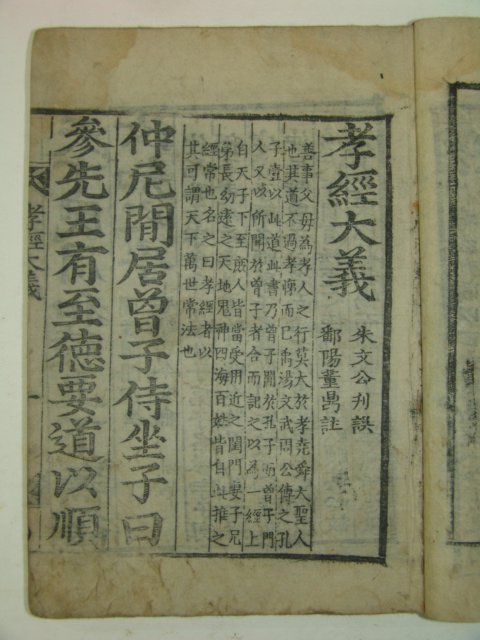 孝經大義
朱文公刋誤
鄱陽董鼎註
善事父母為孝人之行莫大於孝堯舜大聖人
也其道不過孝悌而已禹湯文武周公傳之孔
子壹以此道此書乃曾子聞於孔子而曾子門
人又以所聞於曾子者合而記之以為一經上
自天子下至庶人皆當受用近之閨門妻子兄
弟長幼遠之天地鬼神四海百姓皆自此推之
經常也名之曰孝經者以
其可謂天下萬世常法也
仲尼閒居曾子侍坐子曰
參先王有至德要道以順
孝經大義
一